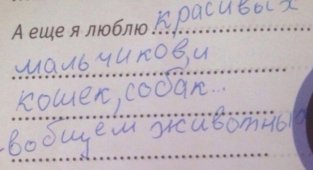 А еще я люблю красивых
мальчиков, и
кошек, собак...
вобщем животных